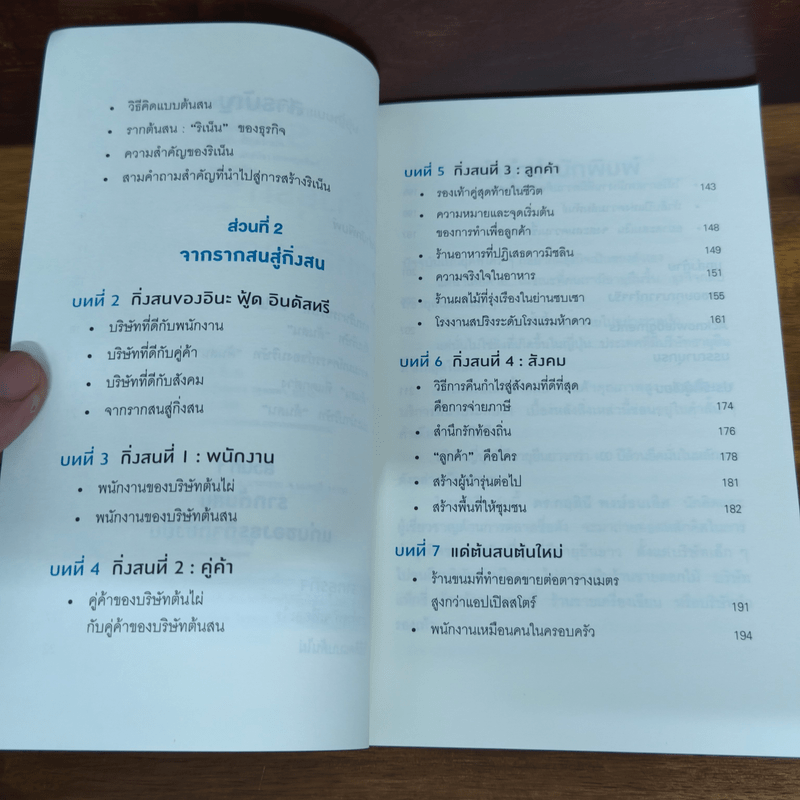 • วิธีคิดแบบต้นสน
• รากต้นสน : “ริเน็น” ของธุรกิจ
• ความสำคัญของริเน็น
• สามคำถามสำคัญที่นำไปสู่การสร้างริเน็น
ส่วนที่ 2
จากรากสนสู่กิ่งสน
บทที่ 2 กิ่งสนของอินะ ฟู้ด อินดัสทรี
• บริษัทที่ดีกับพนักงาน
• บริษัทที่ดีกับคู่ค้า
• บริษัทที่ดีกับสังคม
• จากรากสนสู่กิ่งสน
บทที่ 3 กิ่งสนที่ 1 : พนักงาน
• พนักงานของบริษัทต้นไผ่
• พนักงานของบริษัทต้นสน
บทที่ 4 กิ่งสนที่ 2 : คู่ค้า
• คู่ค้าของบริษัทต้นไผ่
กับคู่ค้าของบริษัทต้นสน
บทที่ 5 กิ่งสนที่ 3 : ลูกค้า
• รองเท้าคู่สุดท้ายในชีวิต 143
• ความหมายและจุดเริ่มต้น
ของการทำเพื่อลูกค้า 148
• ร้านอาหารที่ปฏิเสธดาวมิชลิน 149
• ความจริงใจในอาหาร 151
• ร้านผลไม้ที่รุ่งเรืองในย่านซบเซา 155
• โรงงานสปริงระดับโรงแรมห้าดาว 161
บทที่ 6 กิ่งสนที่ 4 : สังคม
• วิธีการคืนกำไรสู่สังคมที่ดีที่สุด
คือการจ่ายภาษี 174
• สำนึกรักท้องถิ่น 176
• “ลูกค้า” คือใคร 178
• สร้างผู้นำรุ่นต่อไป 181
• สร้างพื้นที่ให้ชุมชน 182
บทที่ 7 แด่ต้นสนต้นใหม่
• ร้านขนมที่ทำยอดขายต่อตารางเมตร
สูงกว่าแอปเปิลสโตร์ 191
• พนักงานเหมือนคนในครอบครัว 194